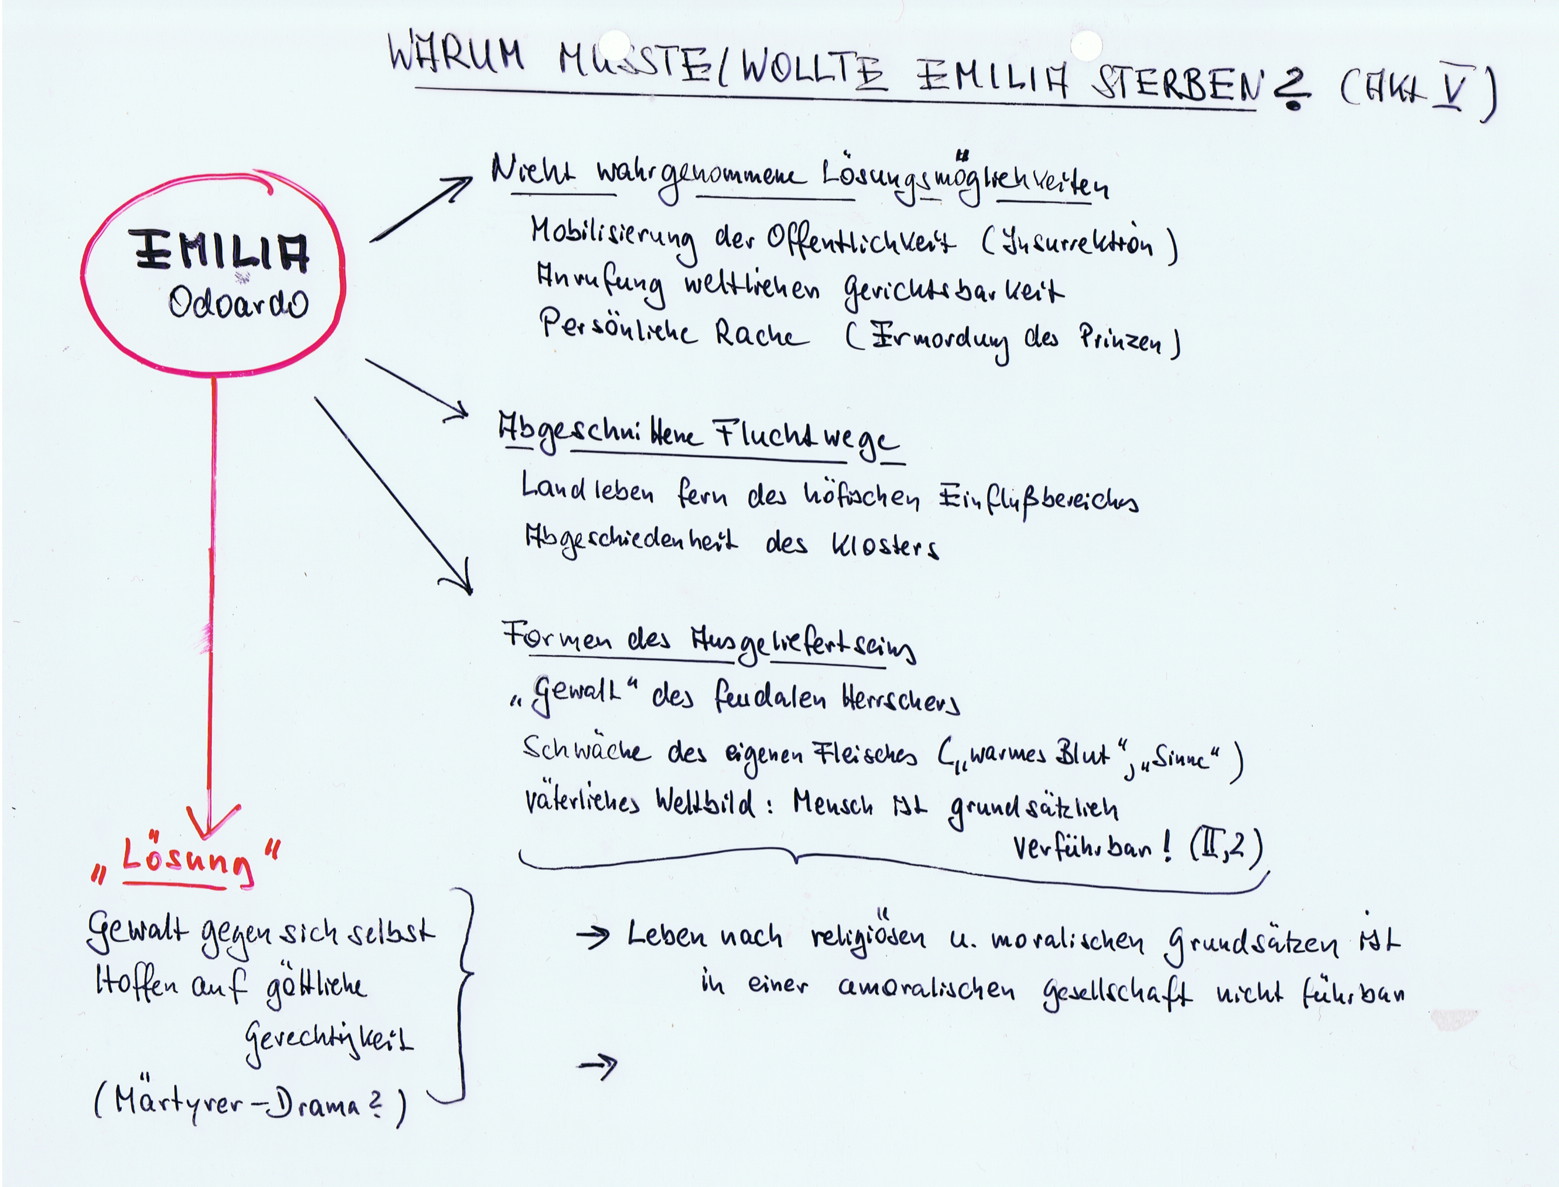 WARUM MUSSTE/WOLLTE EMILIA STERBEN? (Akt V)
EMILIA
Odoardo
Nicht wahrgenommene Lösungsmöglichkeiten
Mobilisierung der Öffentlichkeit (Insurrektion)
Anrufung weltlichen Gerichtsbarkeit
Persönliche Rache (Ermordung des Prinzen)
Abgeschnittene Fluchtwege
Landleben fern des höfischen Einflußbereiches
Abgeschiedenheit des Klosters
Formen des Ausgeliefertseins
„Gewalt“ des feudalen Herrschers
Schwäche des eigenen Fleisches („warmes Blut“, „Sinne“)
väterliches Weltbild: Mensch ist grundsätzlich
verführbar! (II,2)
„Lösung“
Gewalt gegen sich selbst
Hoffen auf göttliche
Gerechtigkeit
(Märtyrer-Drama?)
→ Leben nach religiösen u. moralischen Grundsätzen ist
in einer amoralischen Gesellschaft nicht führbar
→